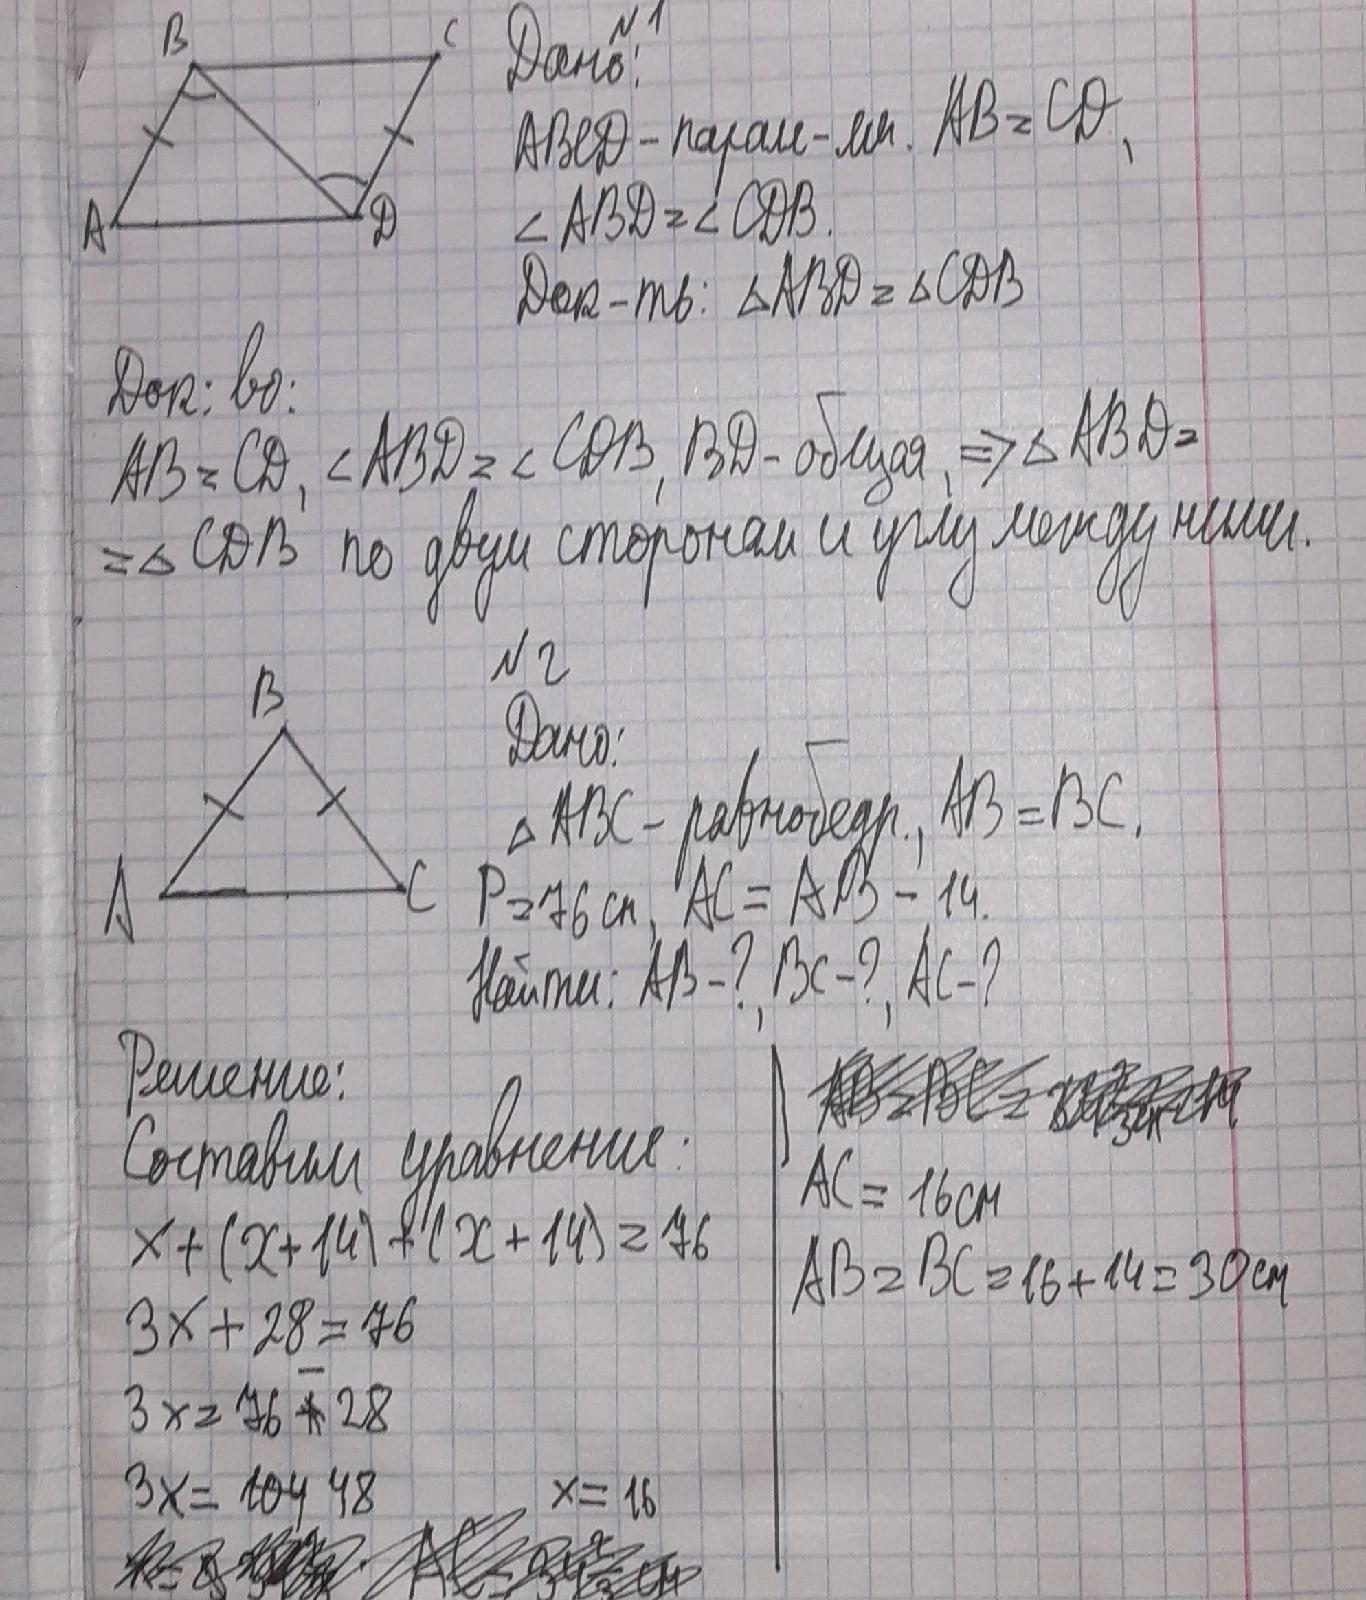 N1
B C
A D
Дано:
ABCD - парал-мм. AB = CD,
∠ABD = ∠CDB.
Док-ть: △ABD = △CDB
Док: во:
AB = CD, ∠ABD = ∠CDB, BD - общая, => △ABD =
= △CDB по двум сторонам и углу между ними.
N2
B
A C
Дано:
△ABC - равнобедр., AB = BC,
P = 76 см, AC = AB - 14.
Найти: AB-?, BC-?, AC-?
Решение:
Составим уравнение:
x + (x + 14) + (x + 14) = 76
3x + 28 = 76
3x = 76 - 28
3x = 104 48 x = 16
AC = 16 см
AB = BC = 16 + 14 = 30 см